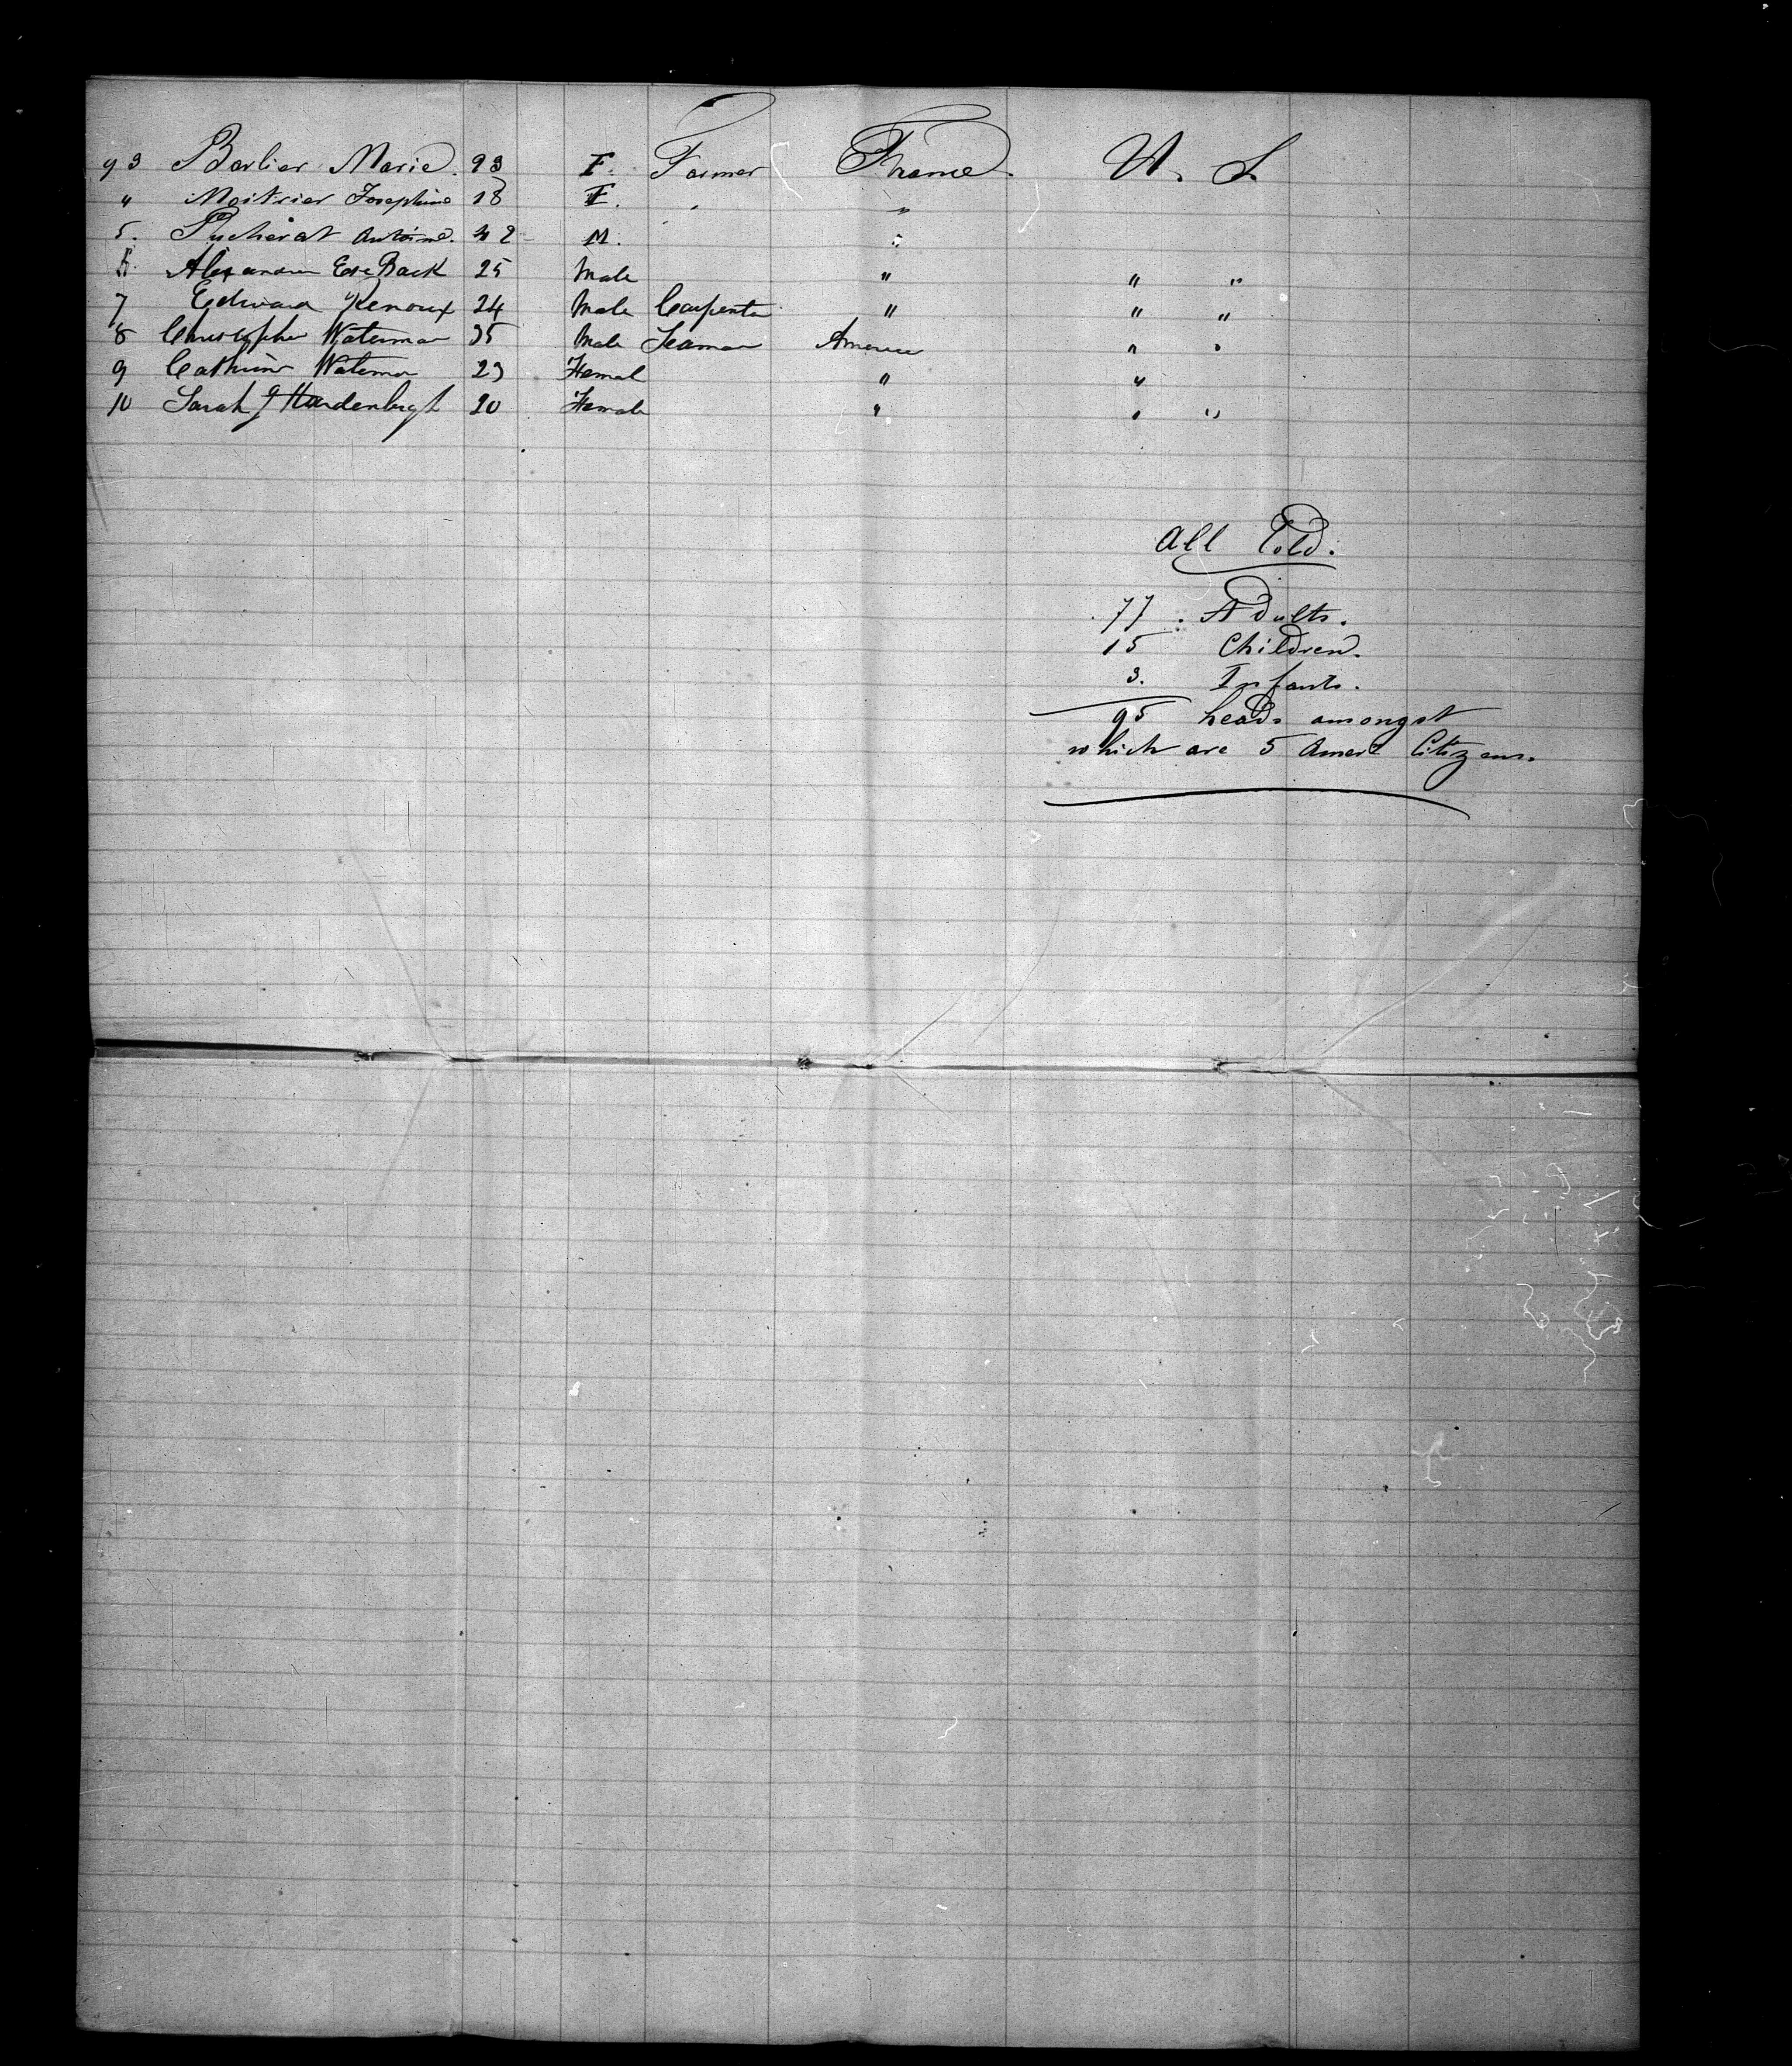 93 Barlier Marie. 23 F. Farmer France. U. S.
" Moitrier Josephine 18 F. " "
5. Pucherat Antoine. 42 M. "
6. Alexander Back 25 Male " " "
7 Edward Renoux 24 Male Carpenter " " "
8 Christopher Waterman 35 Male Seaman America " "
9 Cathrine Waterman 23 Femal " "
10 Sarah J Hardenbergh 20 Female " " "
All Told.
77. Adults.
15 Children.
3. Infants.
95 heads amongst
which are 5 Amert Citizens.